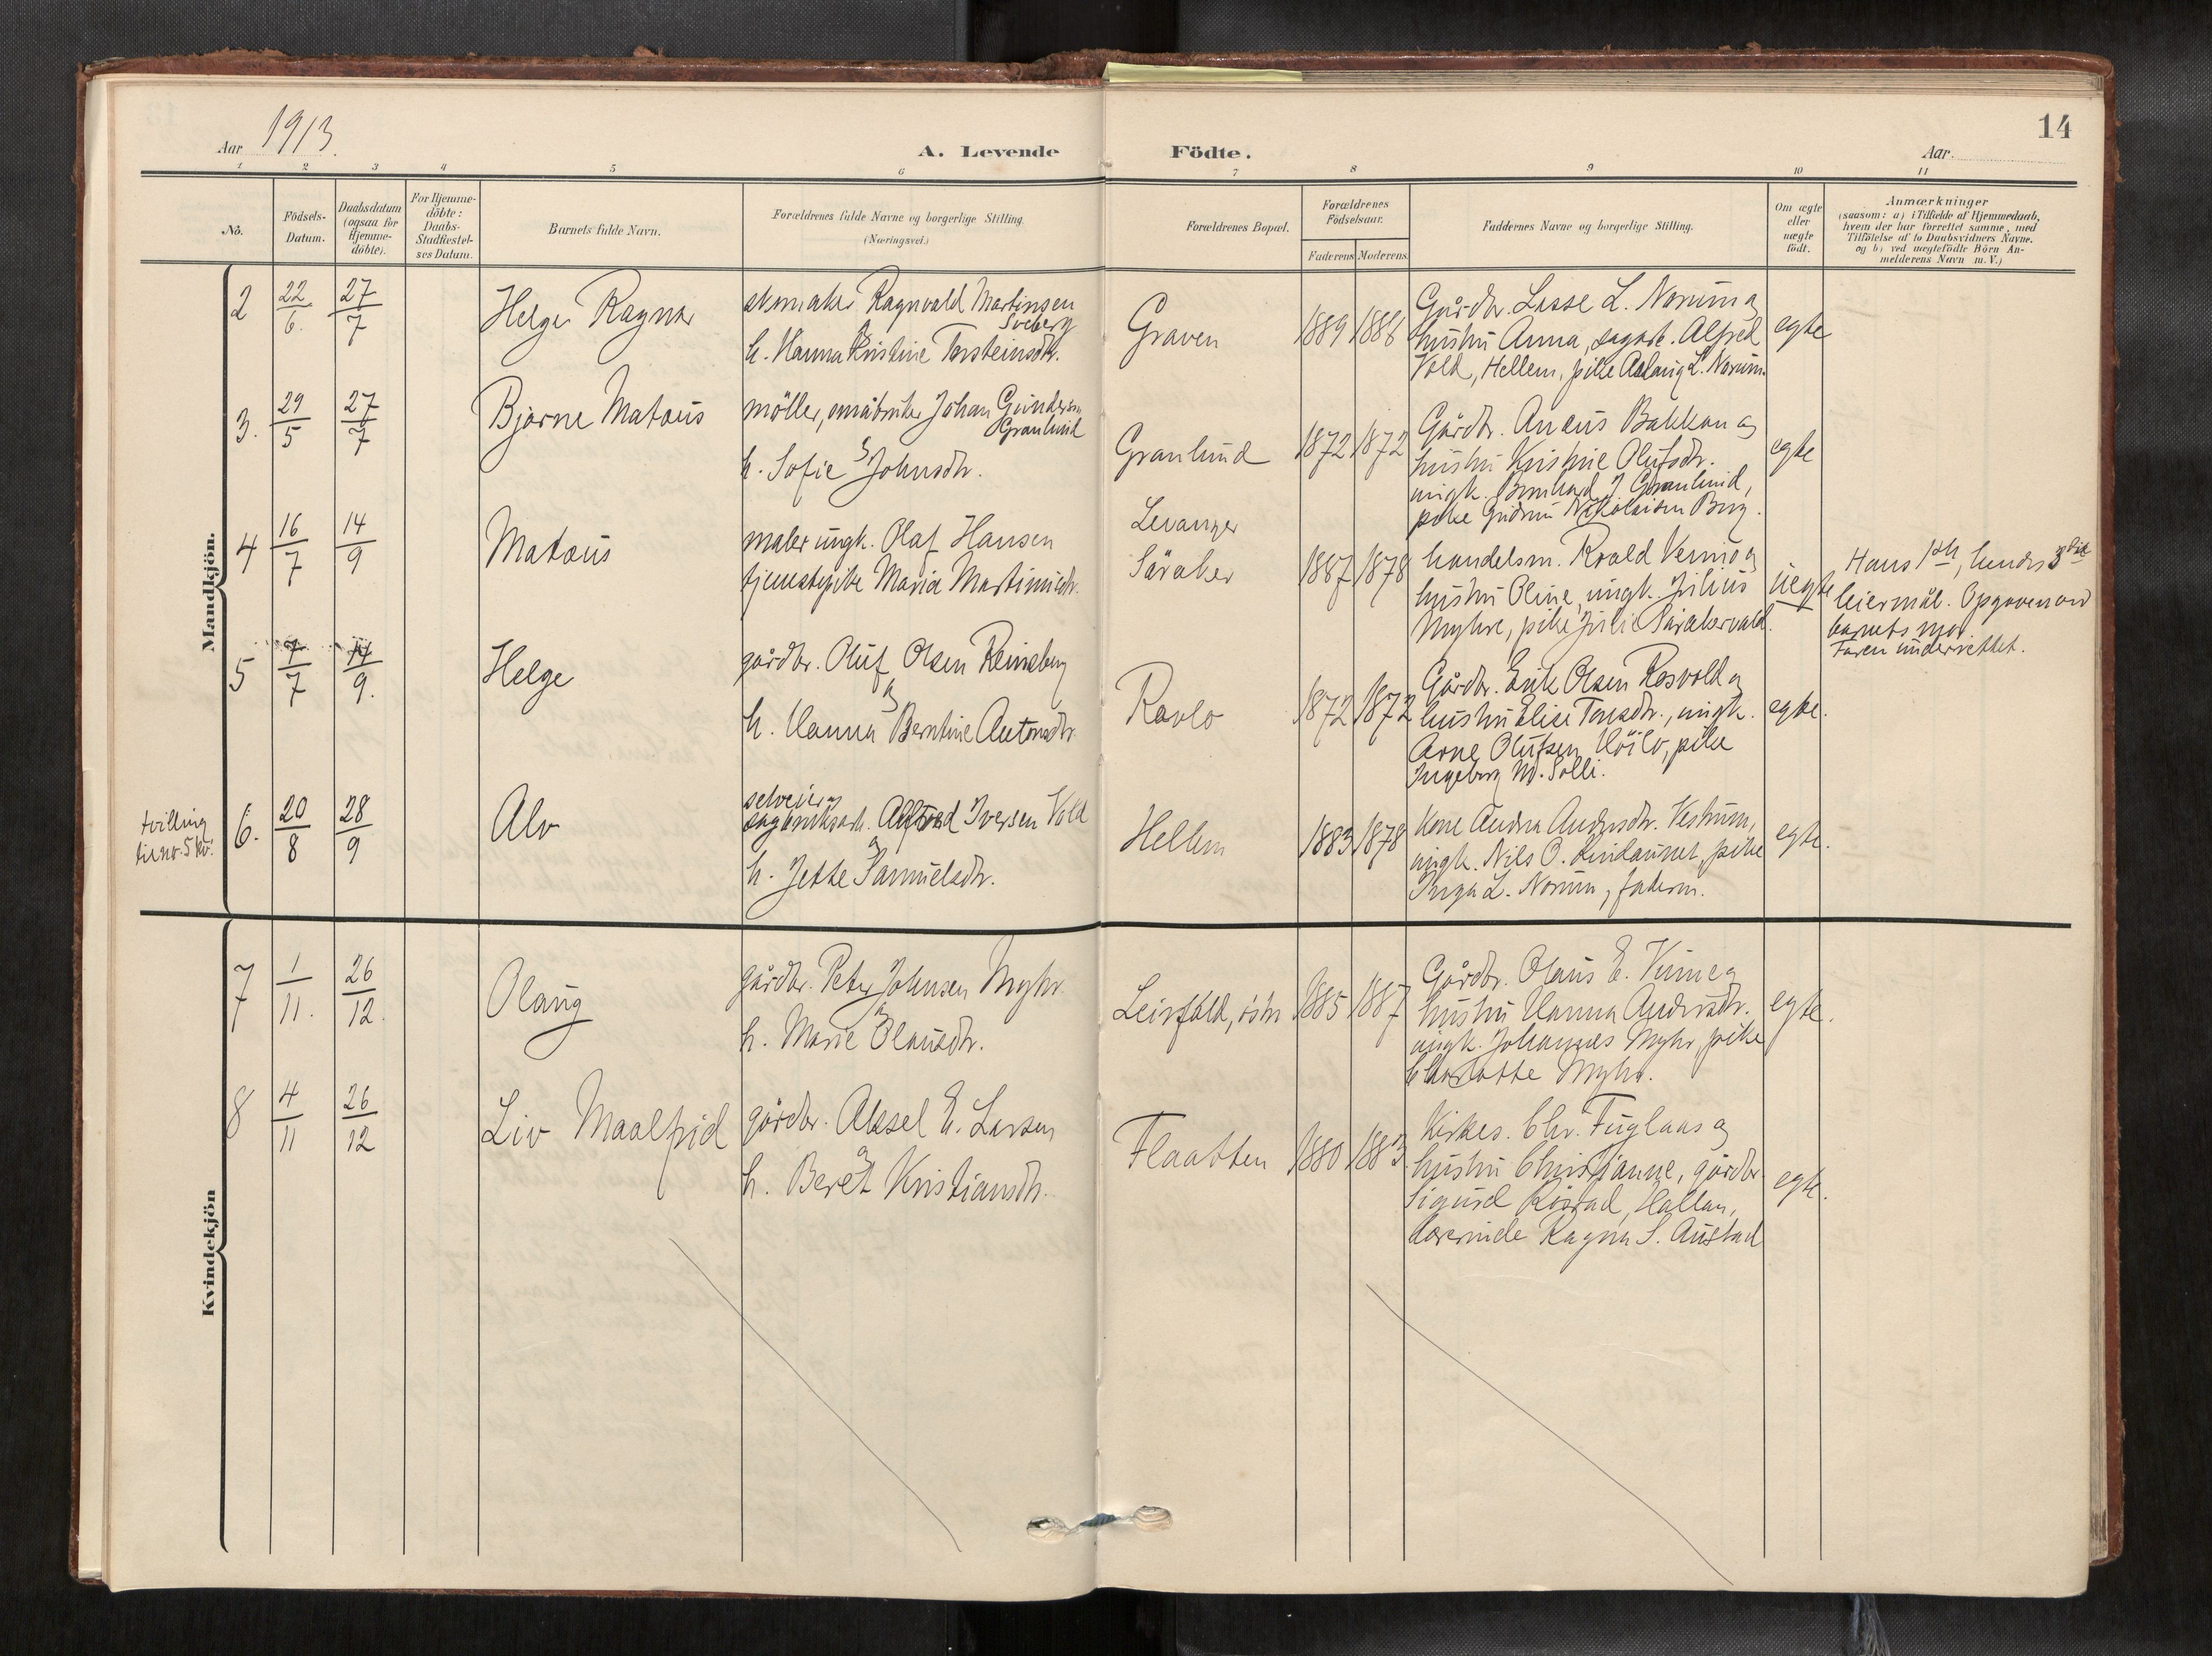 14
Aar 1913.
A. Levende Födte.
Aar.
1 2 3 4 5 6 7 8 9 10 11
No.
Födsels-
Datum.
Daabsdatum
(ogsaa for
Hjemme-
döbte).
For Hjemme-
döbte:
Daabs-
Stadfæstel-
ses Datum.
Barnets fulde Navn.
Forældrenes fulde Navne og borgerlige Stilling
(Næringsvei.)
Forældrenes Bopæl.
Forældrenes
Födselsaar.
Faderens Moderens
Faddernes Navne og borgerlige Stilling.
Om ægte
eller
uægte
födt.
Anmærkninger
(saasom: a) i Tilfælde af Hjemmedaab,
hvem der har forrettet samme, med
Tilföielse af to Daabsvidners Navne.
og b) ved uægtefödte Börn An-
melderens Navn m. V.)
Mandkjön.
2
22/6.
27/7
Helge Ragnar
skomaker Ragnvald Martinsen
Soeberg
og
h. Hanna Kristine Torsteinsdtr.
Graven
1889 1886
Gårdbr. Lasse L. Norum og
hustru Anna, sagarb. Alfred
Vold, Hellem, pike Aslaug L. Norum.
egte
3.
29/5
27/7
Bjarne Matæus
möller, småbruker Johan Gundersen
Granlund
og
h. Sofie Johnsdtr.
Granlund
1872 1872
Gårdbr. Anæus Bakkan og
hustru Kristine Olufsdtr.
ungk. Bernhard J Granlund,
pike Gudrun Nikolaisen Berg.
egte
4
16/7
14/9
Matæus
maler ungk. Olaf Hansen
tjenestepike Maria Martinusdtr.
Levanger
Säraker
1887 1878
handelsm. Roald Venno og
hustru Oline, ungk. Julius
Myhre, pike Julie Säräkervald.
uegte
Hans 1ste, hendes 3die
leiermål. Opgaven av
barnets mor.
Faren underrettet.
5
7/7
14/9.
Helge
gårdbr. Oluf Olsen Reinsberg
og
h. Hanna Berntine Antonsdtr.
Ravlo
1872 1872
Gårdbr. Erik Olsen Rosvold og
hustru Elise Tomasdtr., ungk.
Arne Olufsen Höilo, pike
Ingeborg M. Solli.
egte.
tvilling
til nr. 5 kv.
6.
20/8
28/9
Alv
selveier og
sagbruksarb. Alfred Iversen Vold
og
h. Jette Samuelsdtr.
Hellem
1883 1878
Kone Andrea Andersdtr. Vestrum,
ungk. Nils O. Lindaunet, pike
Inga L. Norum, faderen.
egte.
Kvindekjön
7
1/11.
26/12.
Olaug
gårdbr. Peter Johnsen Myhr
og
h. Marie Olausdtr.
Leirfald, östre
1885 1887
Gårdbr. Olaus E. Vinne og
hustru Hanna Andersdtr.
ungk. Johannes Myhr, pike
Charlotte Myhr.
egte.
8
4/11
26/12
Liv Maalfrid
gårdbr. Aksel E. Larsen
og
h. Beret Kristiansdtr.
Flaatten
1880 1883
Kirkes. Chr. Fuglaas og
hustru Christianne, gårdbr.
Sigurd Röstad, Hallan,
lærerinde Ragna S. Austad
egte.